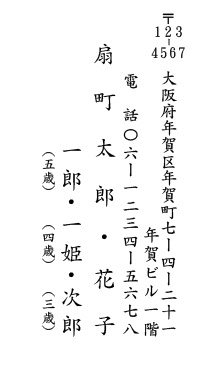 〒123-4567
大阪府年賀区年賀町七ー四ー二十一
年賀ビル一階
電話〇六ー一二三四ー五六七八
扇町太郎・花子
一郎・一姫・次郎
(五歳)(四歳)(三歳)